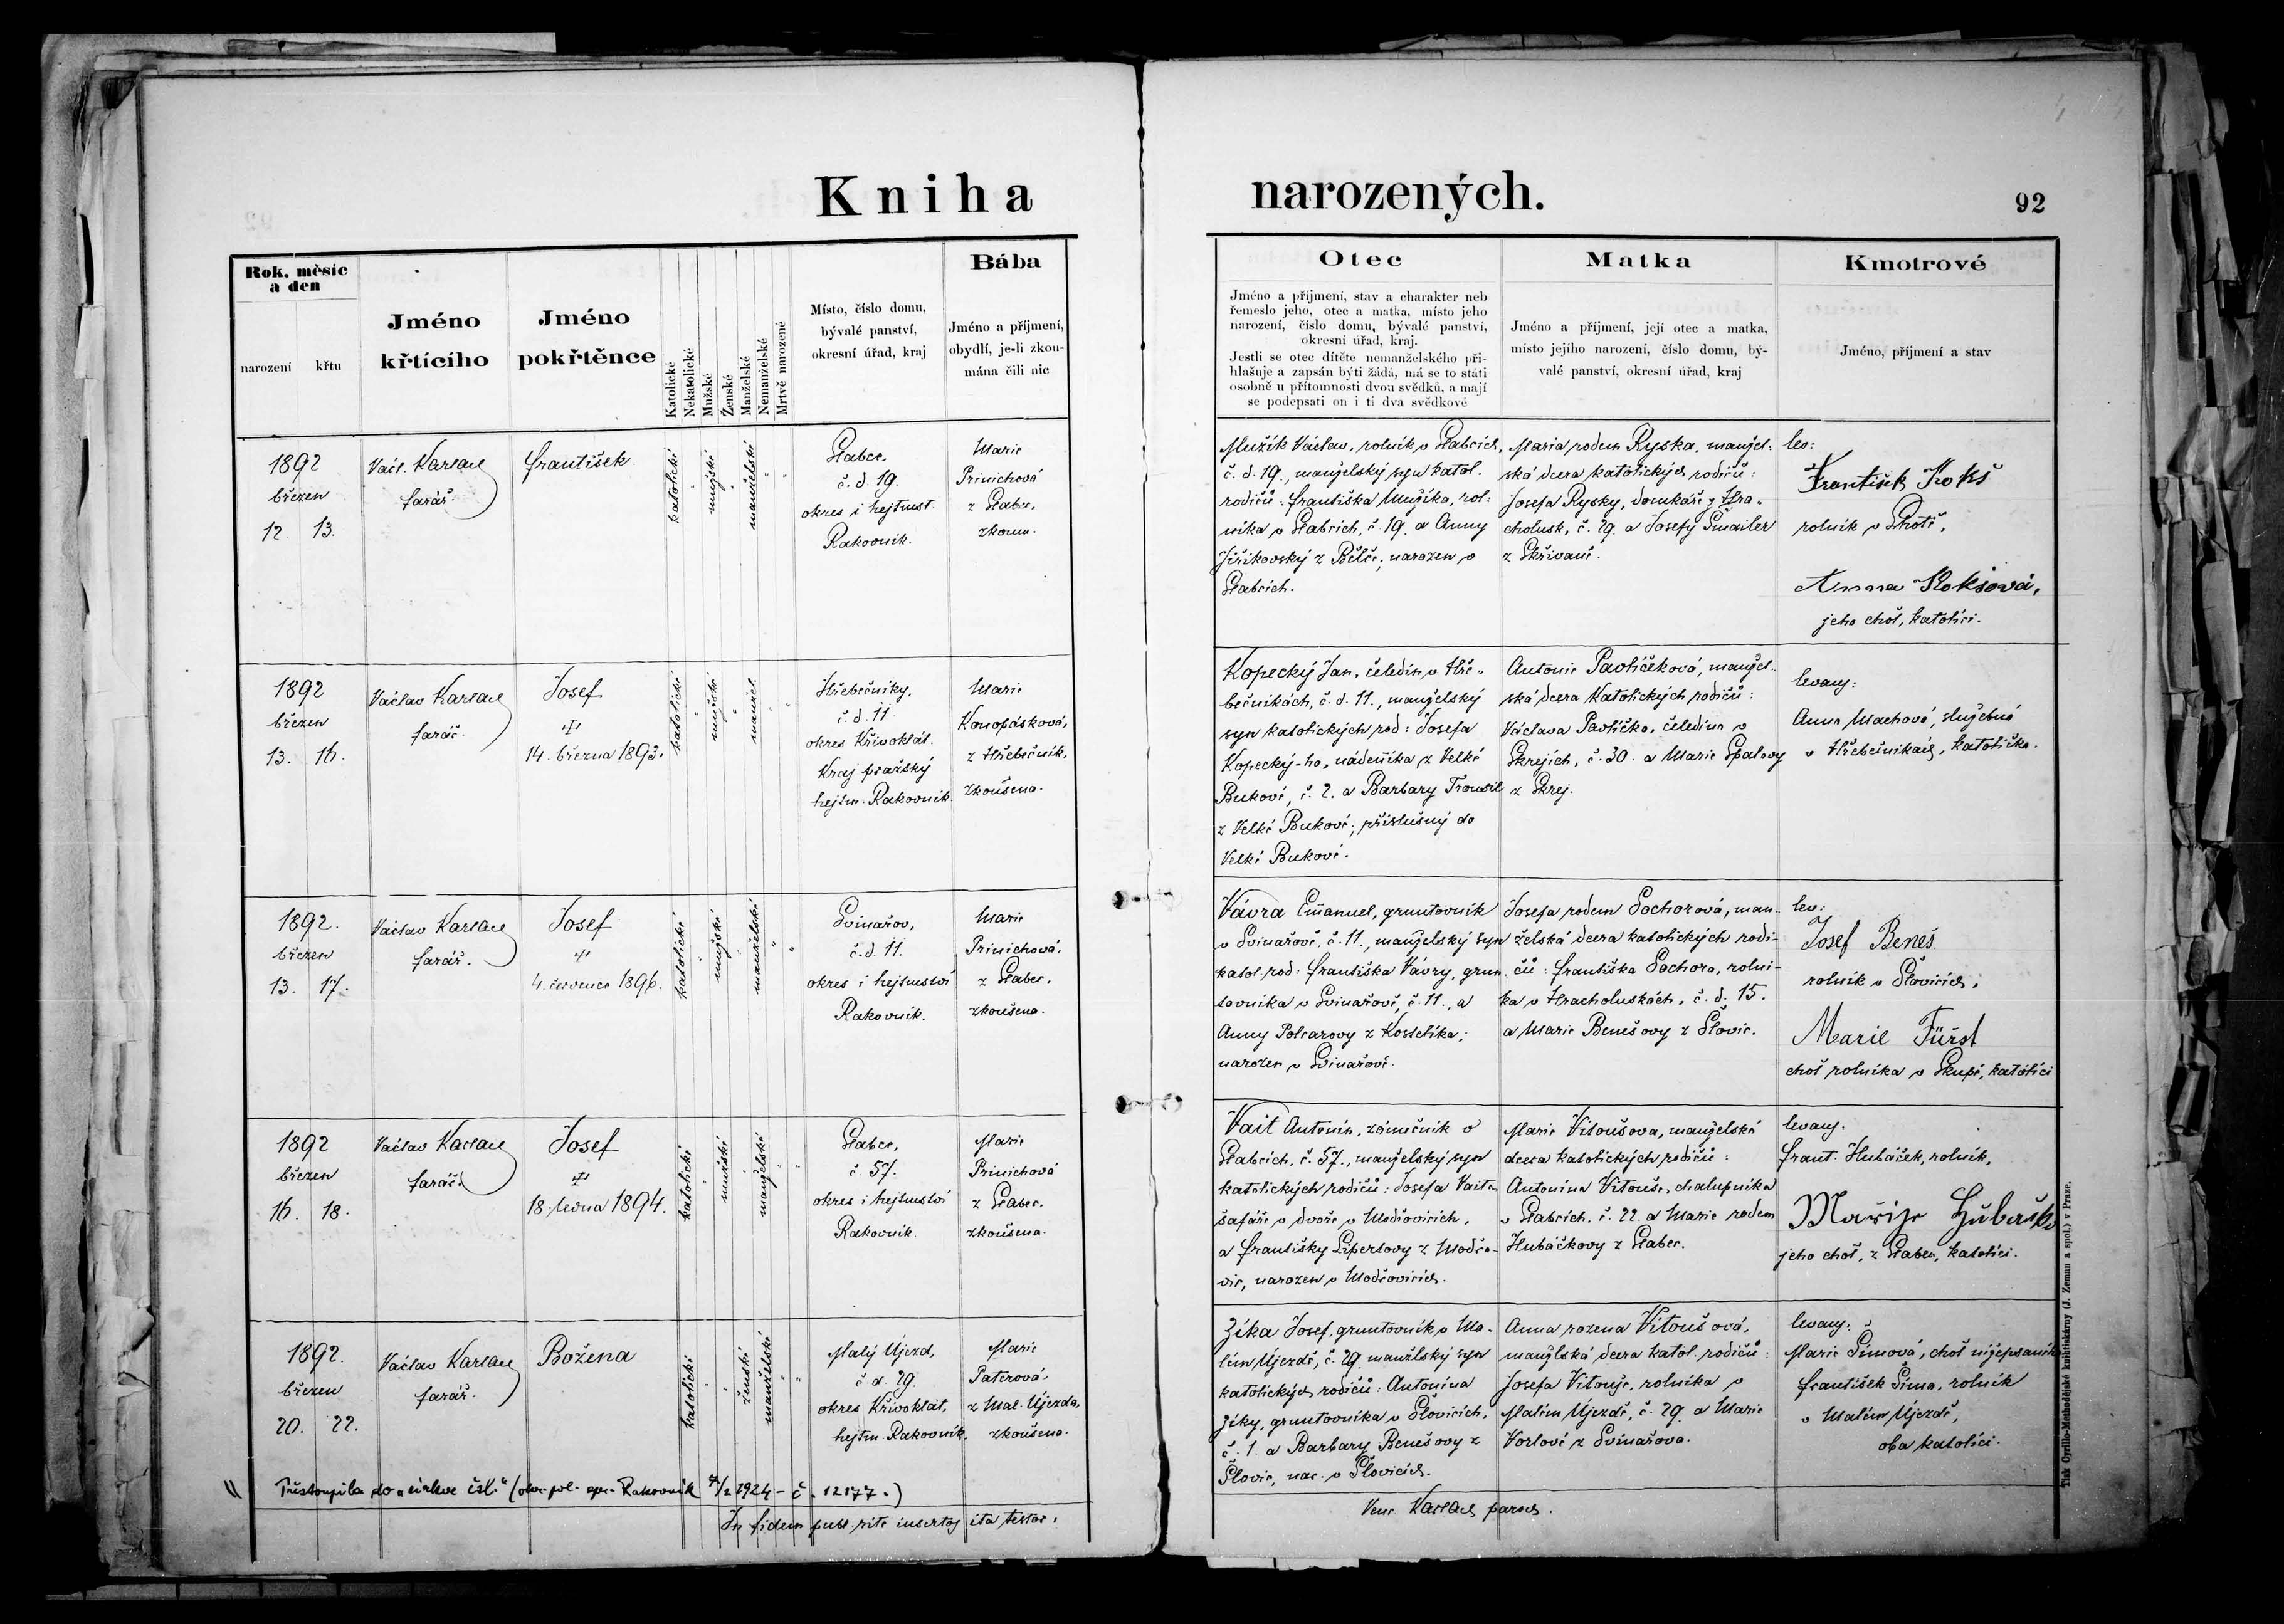 Kniha narozených.
92
Rok, měsíc
a den
narození
křtu
Jméno
křtícího
Jméno
pokřtěnce
Katolické
Nekatolické
Mužské
Ženské
Manželské
Nemanželské
Mrtvě narozené
Místo, číslo domu,
bývalé panství,
okresní úřad, kraj
Bába
Jméno a příjmení,
obydlí, je-li zkou-
mána čili nic
Otec
Jméno a příjmení, stav a charakter neb
řemeslo jeho, otec a matka, místo jeho
narození, číslo domu, bývalé panství,
okresní úřad, kraj.
Jestli se otec dítěte nemanželského při-
hlašuje a zapsán býti žádá, má se to státi
osobně u přítomnosti dvou svědků, a mají
se podepsati on i ti dva svědkové
Matka
Jméno a příjmení, její otec a matka,
místo jejího narození, číslo domu, bý-
valé panství, okresní úřad, kraj
Kmotrové
Jméno, příjmení a stav
1892
březen
12. 13.
Václ. Karlach
farář.
František
katolické
mužské
manželské
Slabce,
č. d. 19.
okres i hejtmst.
Rakovník.
Marie
Prinichová
z Slabec,
zkoum.
Mužík Václav, rolník v Slabcích,
č. d. 19., manželský syn katol.
rodičů: Františka Mužíka, rol-
níka v Slabcích, č. 19. a Anny
Jiříkovský z Bělče; narozen v
Slabcích.
Maria rodem Ryska, manžel-
ská dcera katolických rodičů:
Josefa Rysky, domkáře z Hra-
cholusk, č. 29. a Josefy Šmailer
z Skřivaně.
lev:
František Kokš
rolník v Lhotě,
Anna Kokšová,
jeho choť, katolíci.
1892
březen
13. 16.
Václav Karlach
farář.
Josef
14. března 1893.
katolické
mužské
manžel.
Hřebečníky,
č. d. 11
okres Křivoklát.
Kraj pražský
hejtm. Rakovník.
Marie
Konopásková,
z Hřebečník,
zkoušena.
Kopecký Jan, čeledín v Hře-
bečníkách, č. d. 11., manželský
syn katolických rod: Josefa
Kopecký-ho, nádeníka z Velké
Bukové, č. 2. a Barbary Trousil
z Velké Bukové; příslušný do
Velké Bukové.
Antonie Pavlíčeková, manžel-
ská dcera Katolických rodičů:
Václava Pavlíčka, čeledína v
Skrejích, č. 30. a Marie Špalovy
z Skrej.
levany:
Anna Machová, služebná
v Hřebečníkách, katolička.
1892.
březen
13. 17.
Václav Karlach
farář.
Josef
4. července 1896.
katolické
mužské
manželské
Svinařov,
č. d. 11.
okres i hejtmství
Rakovník.
Marie
Prinichová,
z Slabec,
zkoušena.
Vávra Emanuel, gruntovník
v Svinařově, č. 11., manželský syn
katol. rod: Františka Vávry, grun-
tovníka v Svinařově, č. 11., a
Anny Polcarovy z Kostelíka;
narozen v Svinařově.
Josefa rodem Sochorová, man-
želská dcera katolických rodi-
čů: Františka Sochora, rolní-
ka v Hracholuskách, č. d. 15.
a Marie Benešovy z Šlovic.
lev:
Josef Beneš
rolník v Šlovicích,
Marie Fürst
choť rolníka v Skupé, katolíci
1892
březen
16. 18.
Václav Karlach
farář
Josef
18. ledna 1894.
katolické
mužské
manželské
Slabce,
č. 57.
okres i hejtmství
Rakovník.
Marie
Prinichová
z Slabec.
zkoušena.
Vait Antonín, zámečník v
Slabcích, č. 57., manželský syn
katolických rodičů: Josefa Vaita
šafáře v dvoře v Modřovicích,
a Františky Lipertovy z Modřo-
vic, narozen v Modřovicích.
Marie Vitoušova, manželská
dcera katolických rodičů:
Antonína Vitouše, chalupníka
v Slabcích, č. 22. a Marie rodem
Hubáčkovy z Slabec.
levany:
Frant. Hubáček, rolník,
jeho choť, z Slabec, katolíci.
1892.
březen
20. 22.
Václav Karlach
farář.
Božena
katolické
ženské
manželské
Malý Újezd,
č. d. 29.
okres Křivoklát,
hejtm. Rakovník.
Marie
Paterová,
z Mal. Újezda,
zkoušena.
Zíka Josef, gruntovník v Ma-
lém Újezdě, č. 29. manžlský syn
katolických rodičů: Antonína
Zíky, gruntovníka v Šlovicích,
č. 1. a Barbary Benešovy z
Šlovic, nar. v Šlovicích.
Anna rozena Vitoušová,
manžlská dcera katol. rodičů:
Josefa Vitouše, rolníka v
Malém Újezdě, č. 29. a Marie
Vorlové z Svinařova.
levany:
Marie Šímová, choť nížepsaného
František Šíma, rolník
v Malém Újezdě,
oba katolíci.
Přistoupila do „církve čsl." (okr. pol. spr. Rakovník 7/2 1924 - č. 12177.)
In fidem publ. rite insertos ita testor,
Venc. Karlach paroch.
Tisk Cyrillo-Methodějské knihtiskárny (J. Zeman a spol.) v Praze.